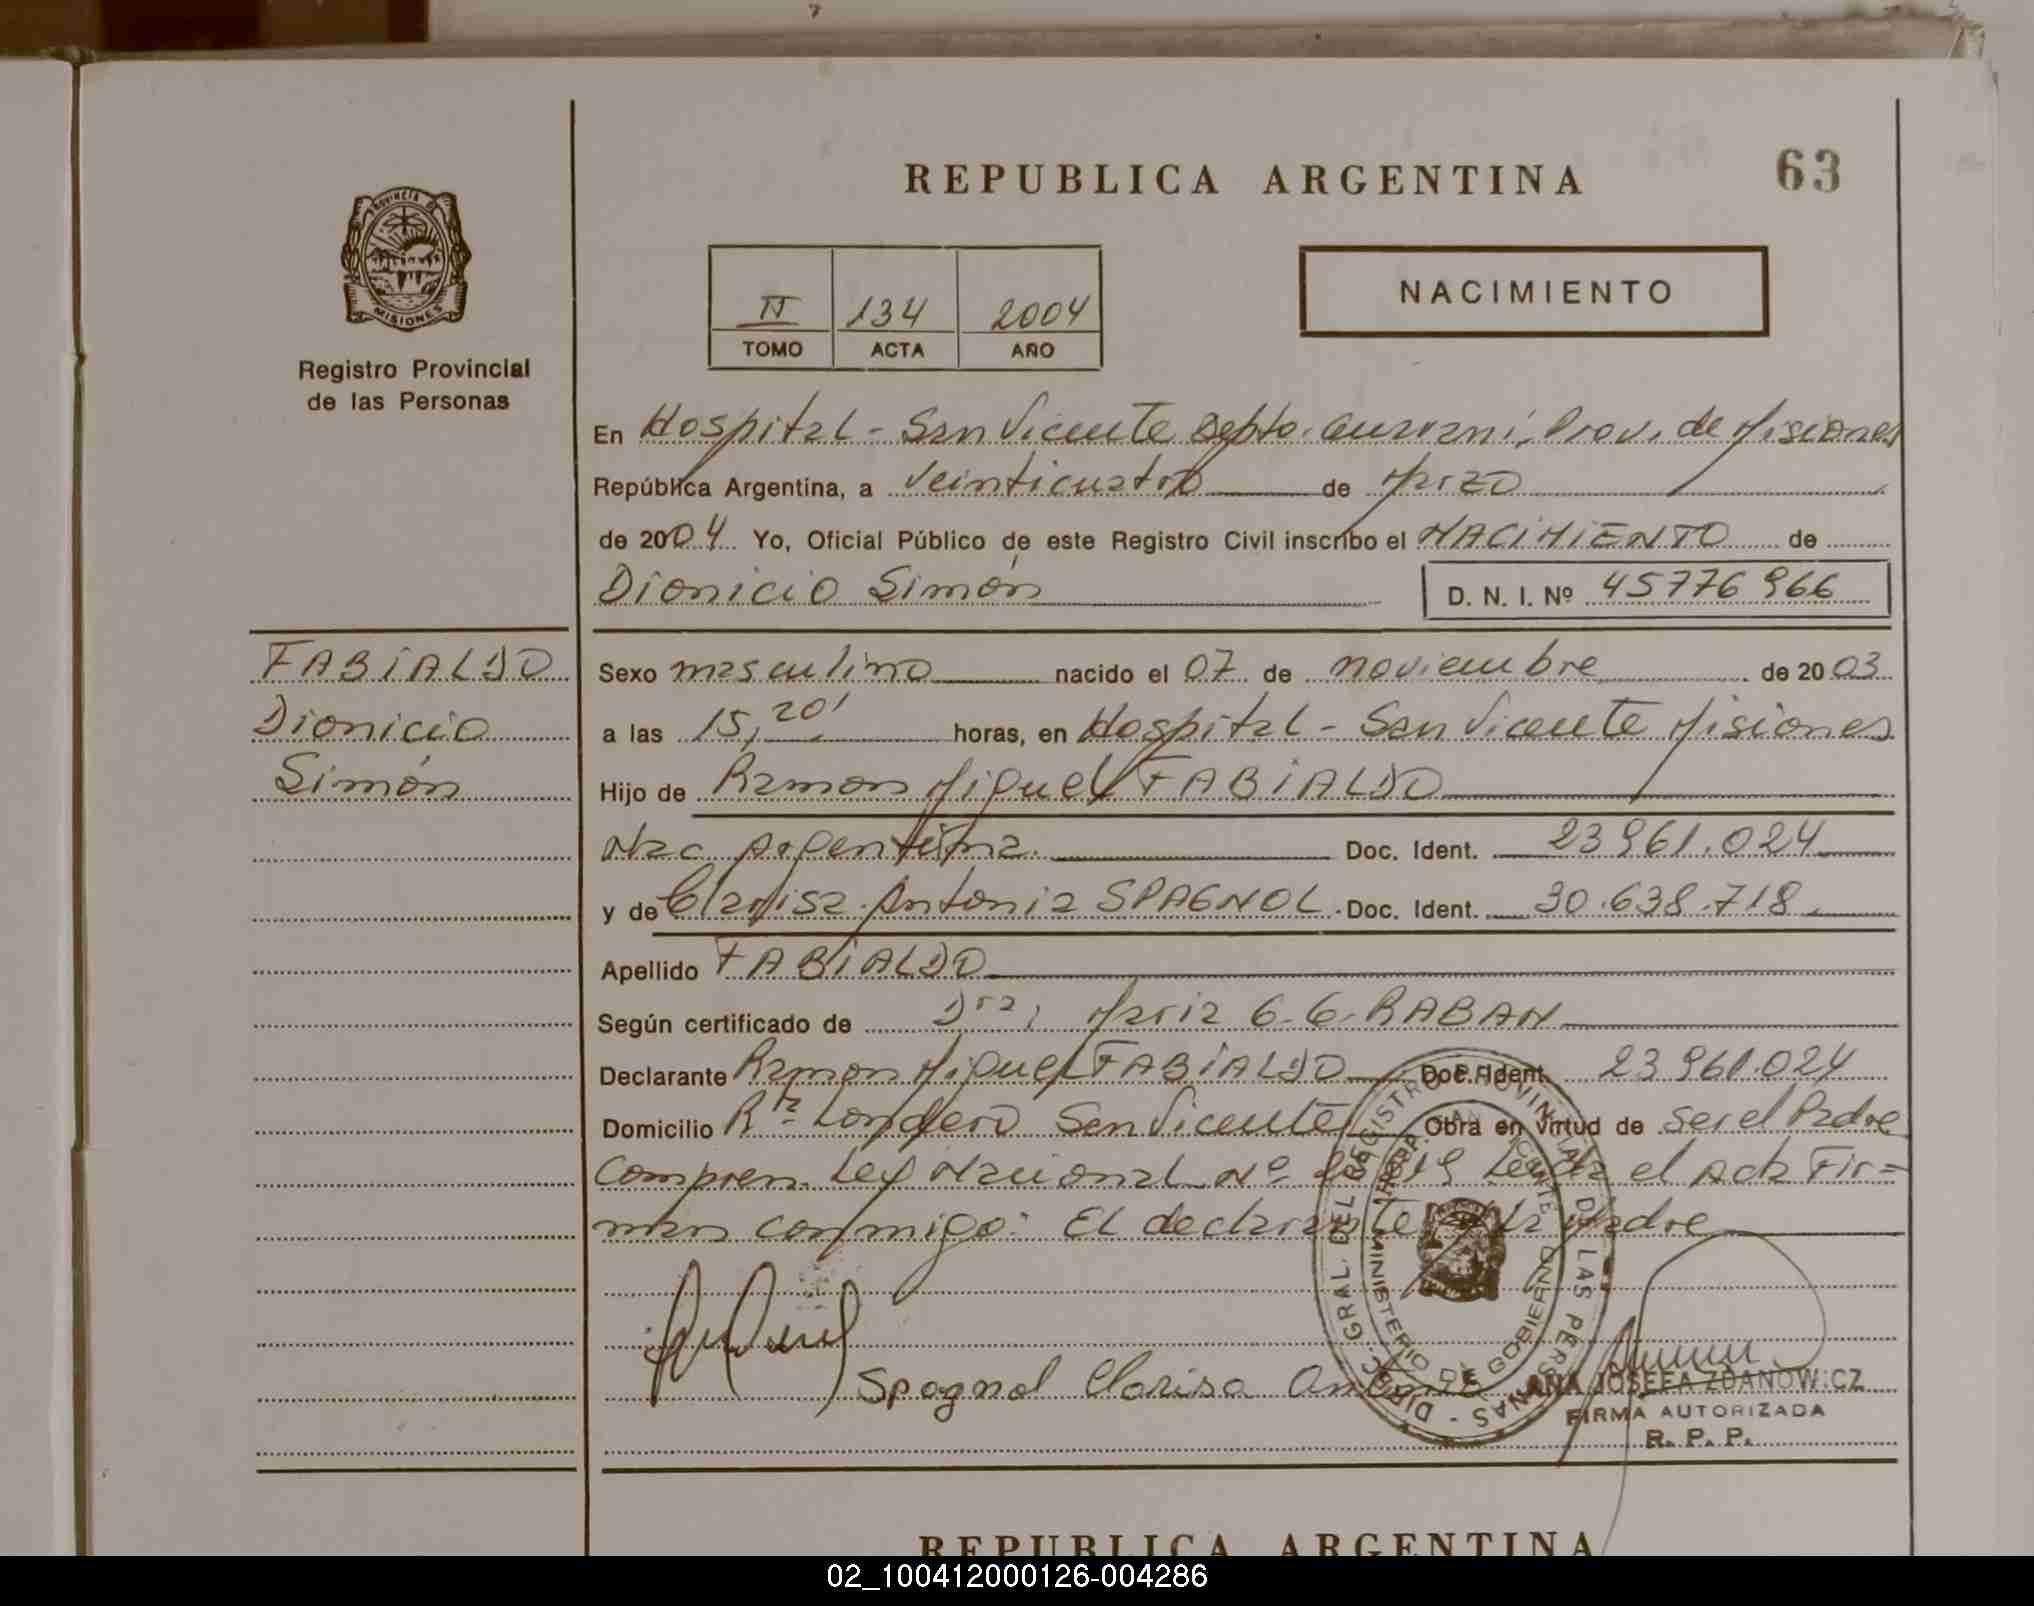 REPUBLICA ARGENTINA
63
PROVINCIA DE
MISIONES
Registro Provincial
de las Personas
II 134 2004
TOMO ACTA AÑO
NACIMIENTO
En Hospital - San Vicente Depto. Guaraní, Prov. de Misiones
República Argentina, a veinticuatro de Marzo
de 2004 Yo, Oficial Público de este Registro Civil inscribo el NACIMIENTO de
Dionicio Simón
D. N. I. Nº 45776966
FABIALDO
Dionicio
Simón
Sexo masculino nacido el 07 de noviembre de 2003
a las 15,20' horas, en Hospital - San Vicente Misiones
Hijo de Ramon Miguel FABIALDO
Nac Argentina. Doc. Ident. 23961.024
y de Clarisa Antonia SPAGNOL. Doc. Ident. 30.638.718
Apellido FABIALDO
Según certificado de Dra, Maria G. G. RABAN
Declarante Ramon Miguel FABIALDO Doc. Ident. 23961.024
Domicilio Rta Londero San Vicente Obra en virtud de ser el Padre
Compren. Ley Nacional Nº Leida el Acta Fir=
man conmigo: El declarante la Madre
Spagnol Clarisa
DIREC. GRAL. DEL REGISTRO PROVINCIAL DE LAS PERSONAS -
MINISTERIO DE GOBIERNO
ANA JOSEFA ZDANOWICZ
FIRMA AUTORIZADA
R. P. P.
REPUBLICA ARGENTINA
02_100412000126-004286